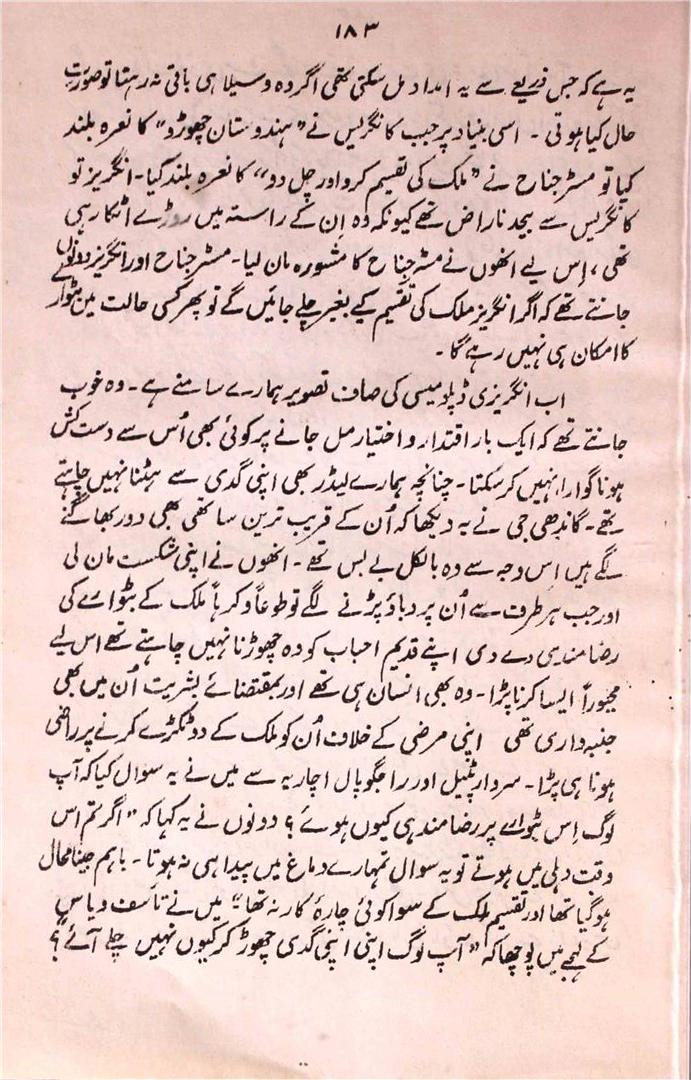 ۱۸۳
یہ ہے کہ جس ذریعے سے یہ امداد مل سکتی تھی اگر وہ وسیلا ہی باقی نہ رہتا تو صورت
حال کیا ہوتی ۔ اسی بنیاد پر جب کانگریس نے ”ہندوستان چھوڑو“ کا نعرہ بلند
کیا تو مسٹر جناح نے ”ملک کی تقیسم کرو اور چل دو“ کا نعرہ بلند گیا ۔ انگریز تو
کانگریس سے بیحد ناراض تھے کیونکہ وہ اِن کے راستہ میں روڑے اٹکا رہی
تھی ، اِس لیے انھوں نے مسٹر جناح کا مشورہ مان لیا ۔ مسٹر جناح اور انگریز دونوں
جانتے تھے کہ اگر انگریز ملک کی تقسیم کیے بغیر چلے جائیں گے تو پھر کسی حالت میں بٹوارے
کا امکان ہی نہیں رہے گا ۔
اب انگریزی ڈپلومیسی کی صاف تصویر ہمارے سامنے ہے ۔ وہ خوب
جانتے تھے کہ ایک بار اقتدار و اختیار مل جانے پر کوئی بھی اُس سے دست کش
ہونا گوارا نہیں کر سکتا ۔ چنانچہ ہمارے لیڈر بھی اپنی گدی سے ہٹنا نہیں چاہتے
تھے ۔ گاندھی جی نے یہ دیکھا کہ اُن کے قریب ترین ساتھی بھی دور بھاگنے
لگے ہیں اِس وجہ سے وہ بالکل بے بس تھے ۔ انھوں نے اپنی شکست مان لی
اور جب ہر طرف سے اُن پر دباؤ پڑنے لگے تو طوعاً و کرہاً ملک کے بٹوارے کی
رضا مندی دے دی اپنے قدیم احباب کو وہ چھوڑنا نہیں چاہتے تھے اس لیے
مجبوراً ایسا کرنا پڑا ۔ وہ بھی انسان ہی تھے اور بمقتضائے بشریت اُن میں بھی
جنبہ داری تھی اپنی مرضی کے خلاف اُن کو ملک کے دو ٹکڑے کرنے پر راضی
ہونا ہی پڑا ۔ سردار پٹیل اور راجگوپال اچاریہ سے میں نے یہ سوال کیا کہ آپ
لوگ اِس بٹوارے پر رضا مند ہی کیوں ہوئے ؟ دونوں نے یہ کہا کہ ”اگر تم اس
وقت دلی میں ہوتے تو یہ سوال تمہارے دماغ میں پیدا ہی نہ ہوتا ۔ باہم جینا محال
ہو گیا تھا اور تقسیم ملک کے سوا کوئی چارۂ کار نہ تھا“ میں نے تأسف و یاس
کے لہجے میں پوچھا کہ ”آپ لوگ اپنی اپنی گدی چھوڑ کر کیوں نہیں چلے آئے“ ؟